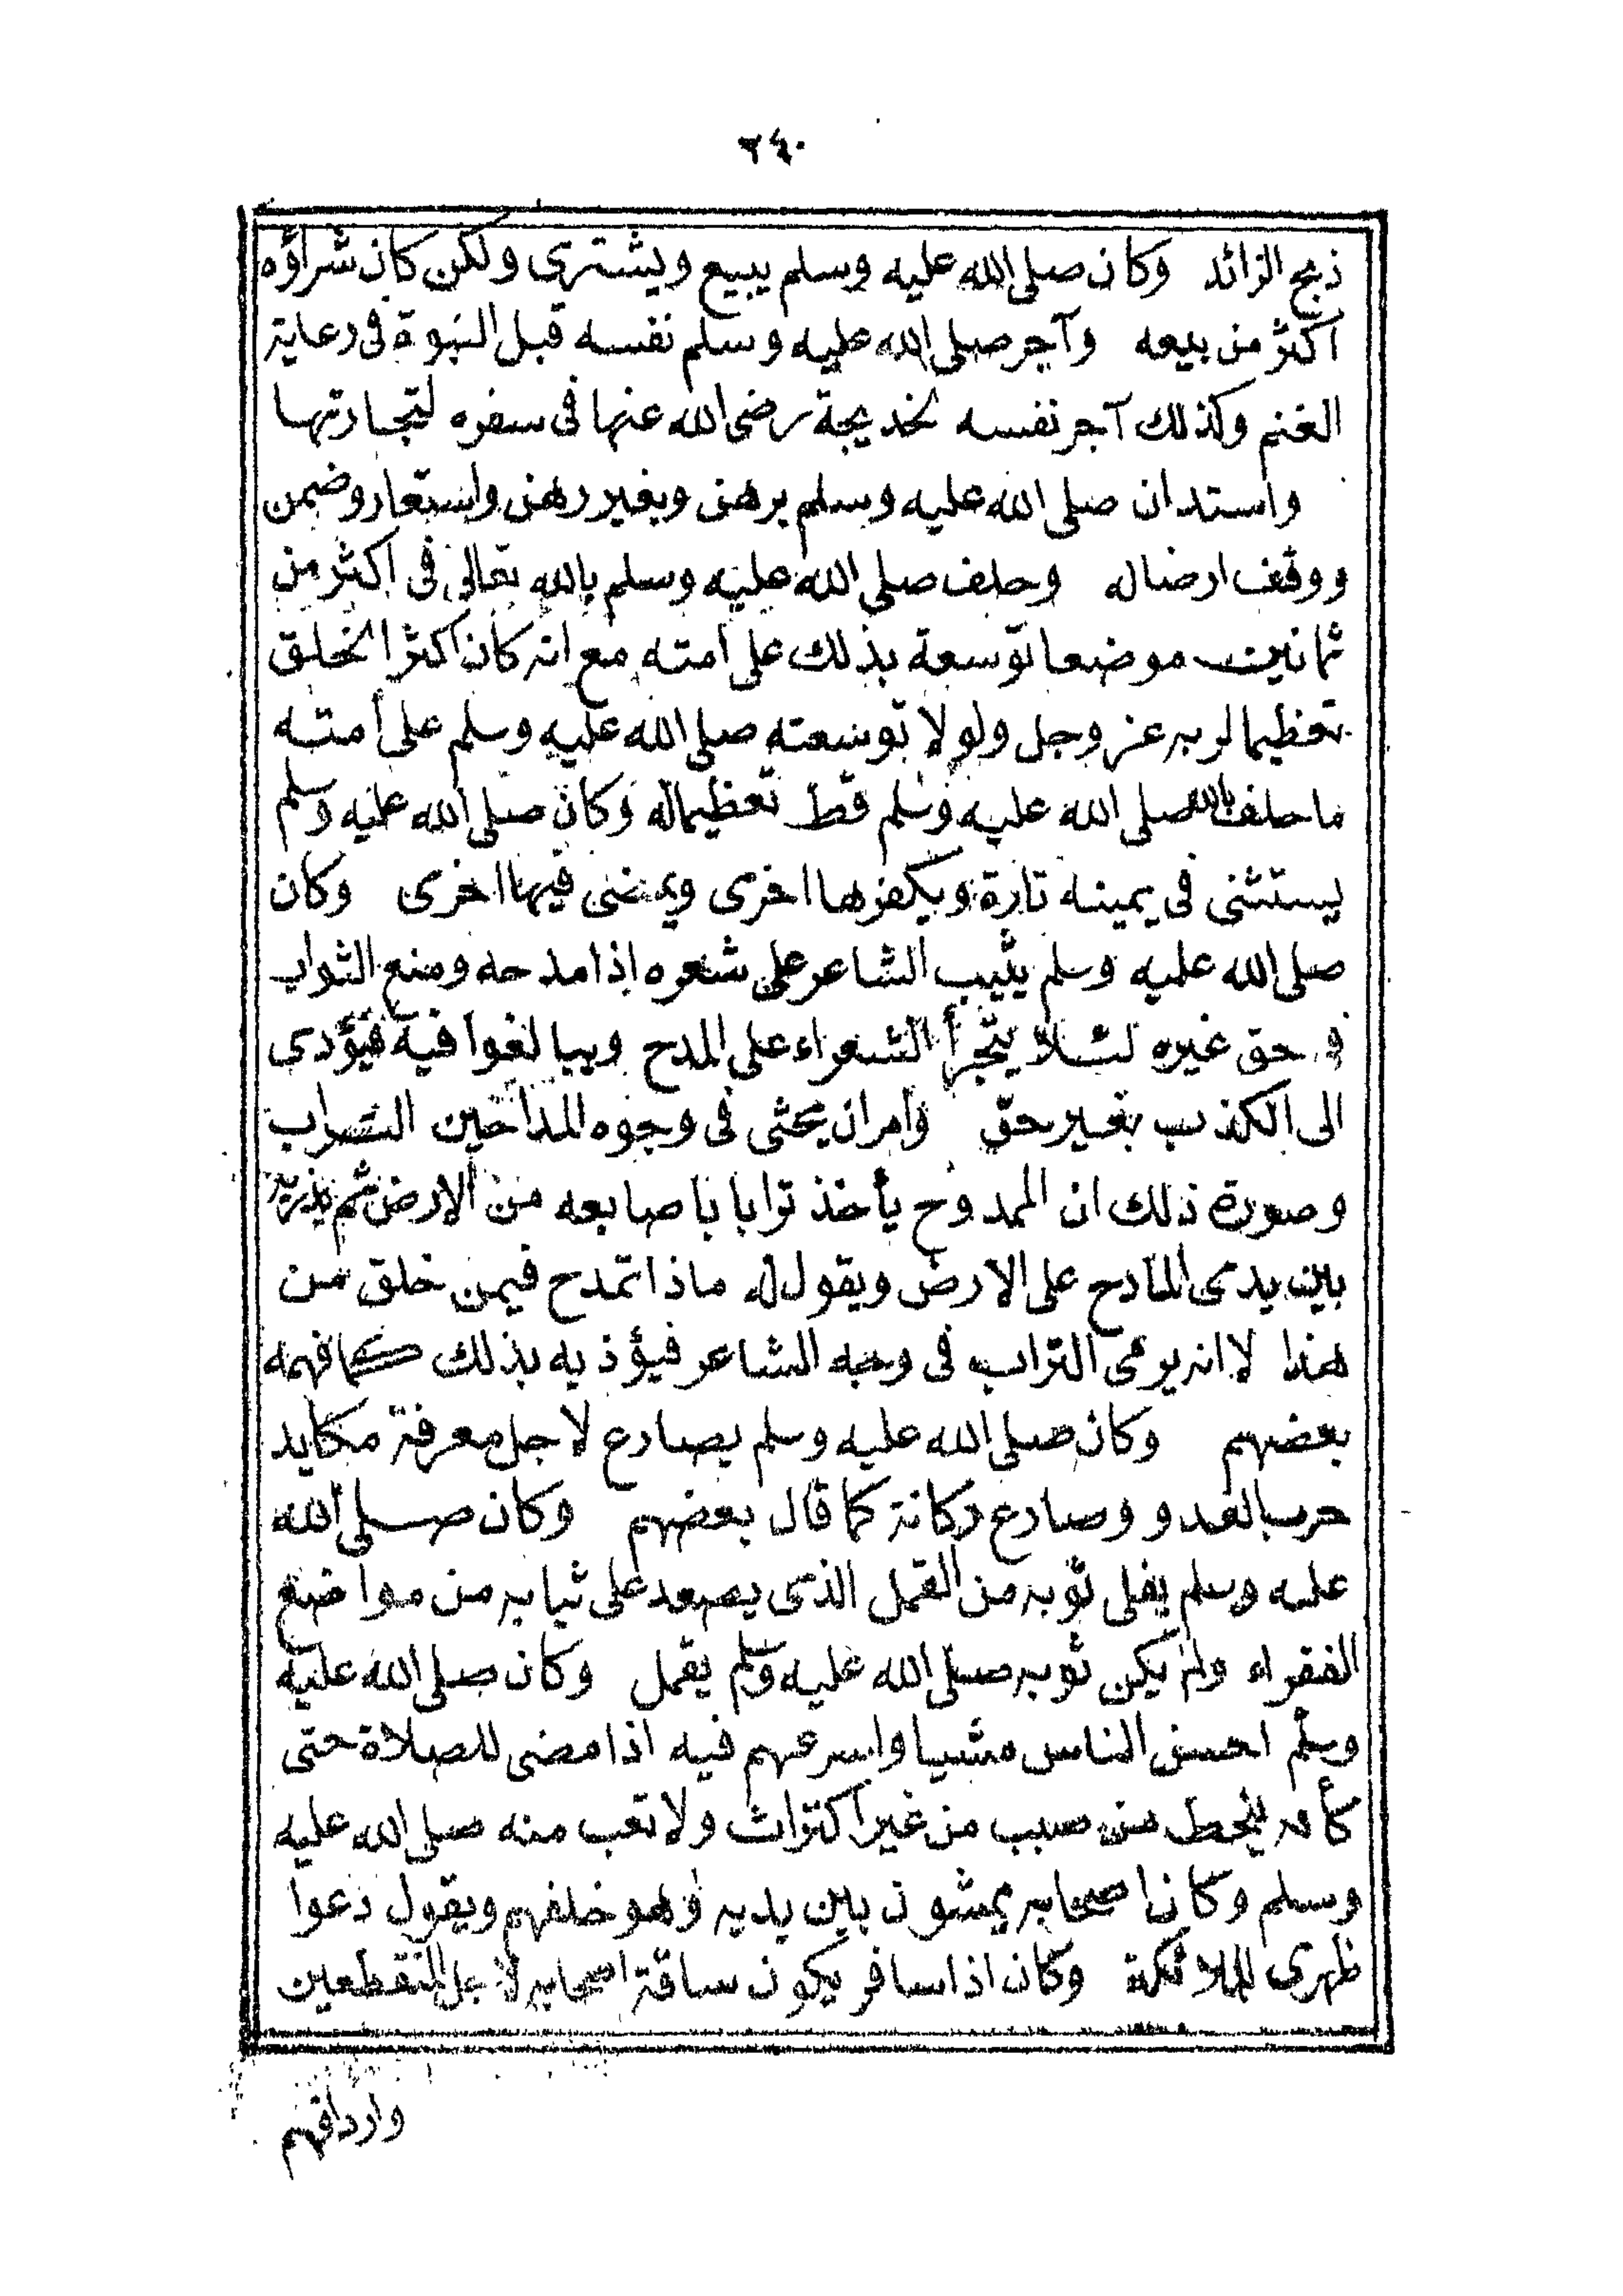 ٢٤٠
ذبح الزائد وكان صلى الله عليه وسلم يبيع ويشترى ولكن كان شراؤه
اكثر من بيعه وآجر صلى الله عليه وسلم نفسه قبل النبوة فى رعاية
الغنم وكذلك آجر نفسه لخديجة رضى الله عنها فى سفره لتجارتها
واستدان صلى الله عليه وسلم برهن وبغير رهن واستعار وضمن
ووقف ارضا له وحلف صلى الله عليه وسلم بالله تعالى فى اكثر من
ثمانين موضعا توسعة بذلك على امته مع انه كان اكثر الخلق
تعظيما لربه عز وجل ولولا توسعته صلى الله عليه وسلم على أمته
ما حلف بالله صلى الله عليه وسلم قط تعظيما له وكان صلى الله عليه وسلم
يستثنى فى يمينه تارة ويكفرها اخرى ويمضى فيها اخرى وكان
صلى الله عليه وسلم يثيب الشاعر على شعره إذا مدحه ومنع الثواب
فى حق غيره لئلا يتجرأ الشعراء على المدح ويبالغوا فيه فيؤدى
الى الكذب بغير حق وامر ان يحثى فى وجوه المداحين التراب
وصورة ذلك ان الممدوح يأخذ ترابا باصابعه من الارض ثم يذريه
بين يدى المادح على الارض ويقول له ماذا تمدح فيمن خلق من
هذا لا انه يرمى التراب فى وجه الشاعر فيؤذيه بذلك كما فهمه
بعضهم وكان صلى الله عليه وسلم يصارع لاجل معرفة مكايد
حرب العدو وصارع ركانة كما قال بعضهم وكان صلى الله
عليه وسلم يفلى ثوبه من القمل الذى يصعد على ثيابه من مواضع
الفقراء ولم يكن ثوبه صلى الله عليه وسلم يقمل وكان صلى الله عليه
وسلم احسن الناس مشيا واسرعهم فيه اذا مضى للصلاة حتى
كأنه ينحط من صبب من غير اكتراث ولا تعب منه صلى الله عليه
وسلم وكان اصحابه يمشون بين يديه وهو خلفهم ويقول دعوا
ظهرى للملائكة وكان اذا سافر يكون ساقة اصحابه لاجل المنقطعين
واردافهم